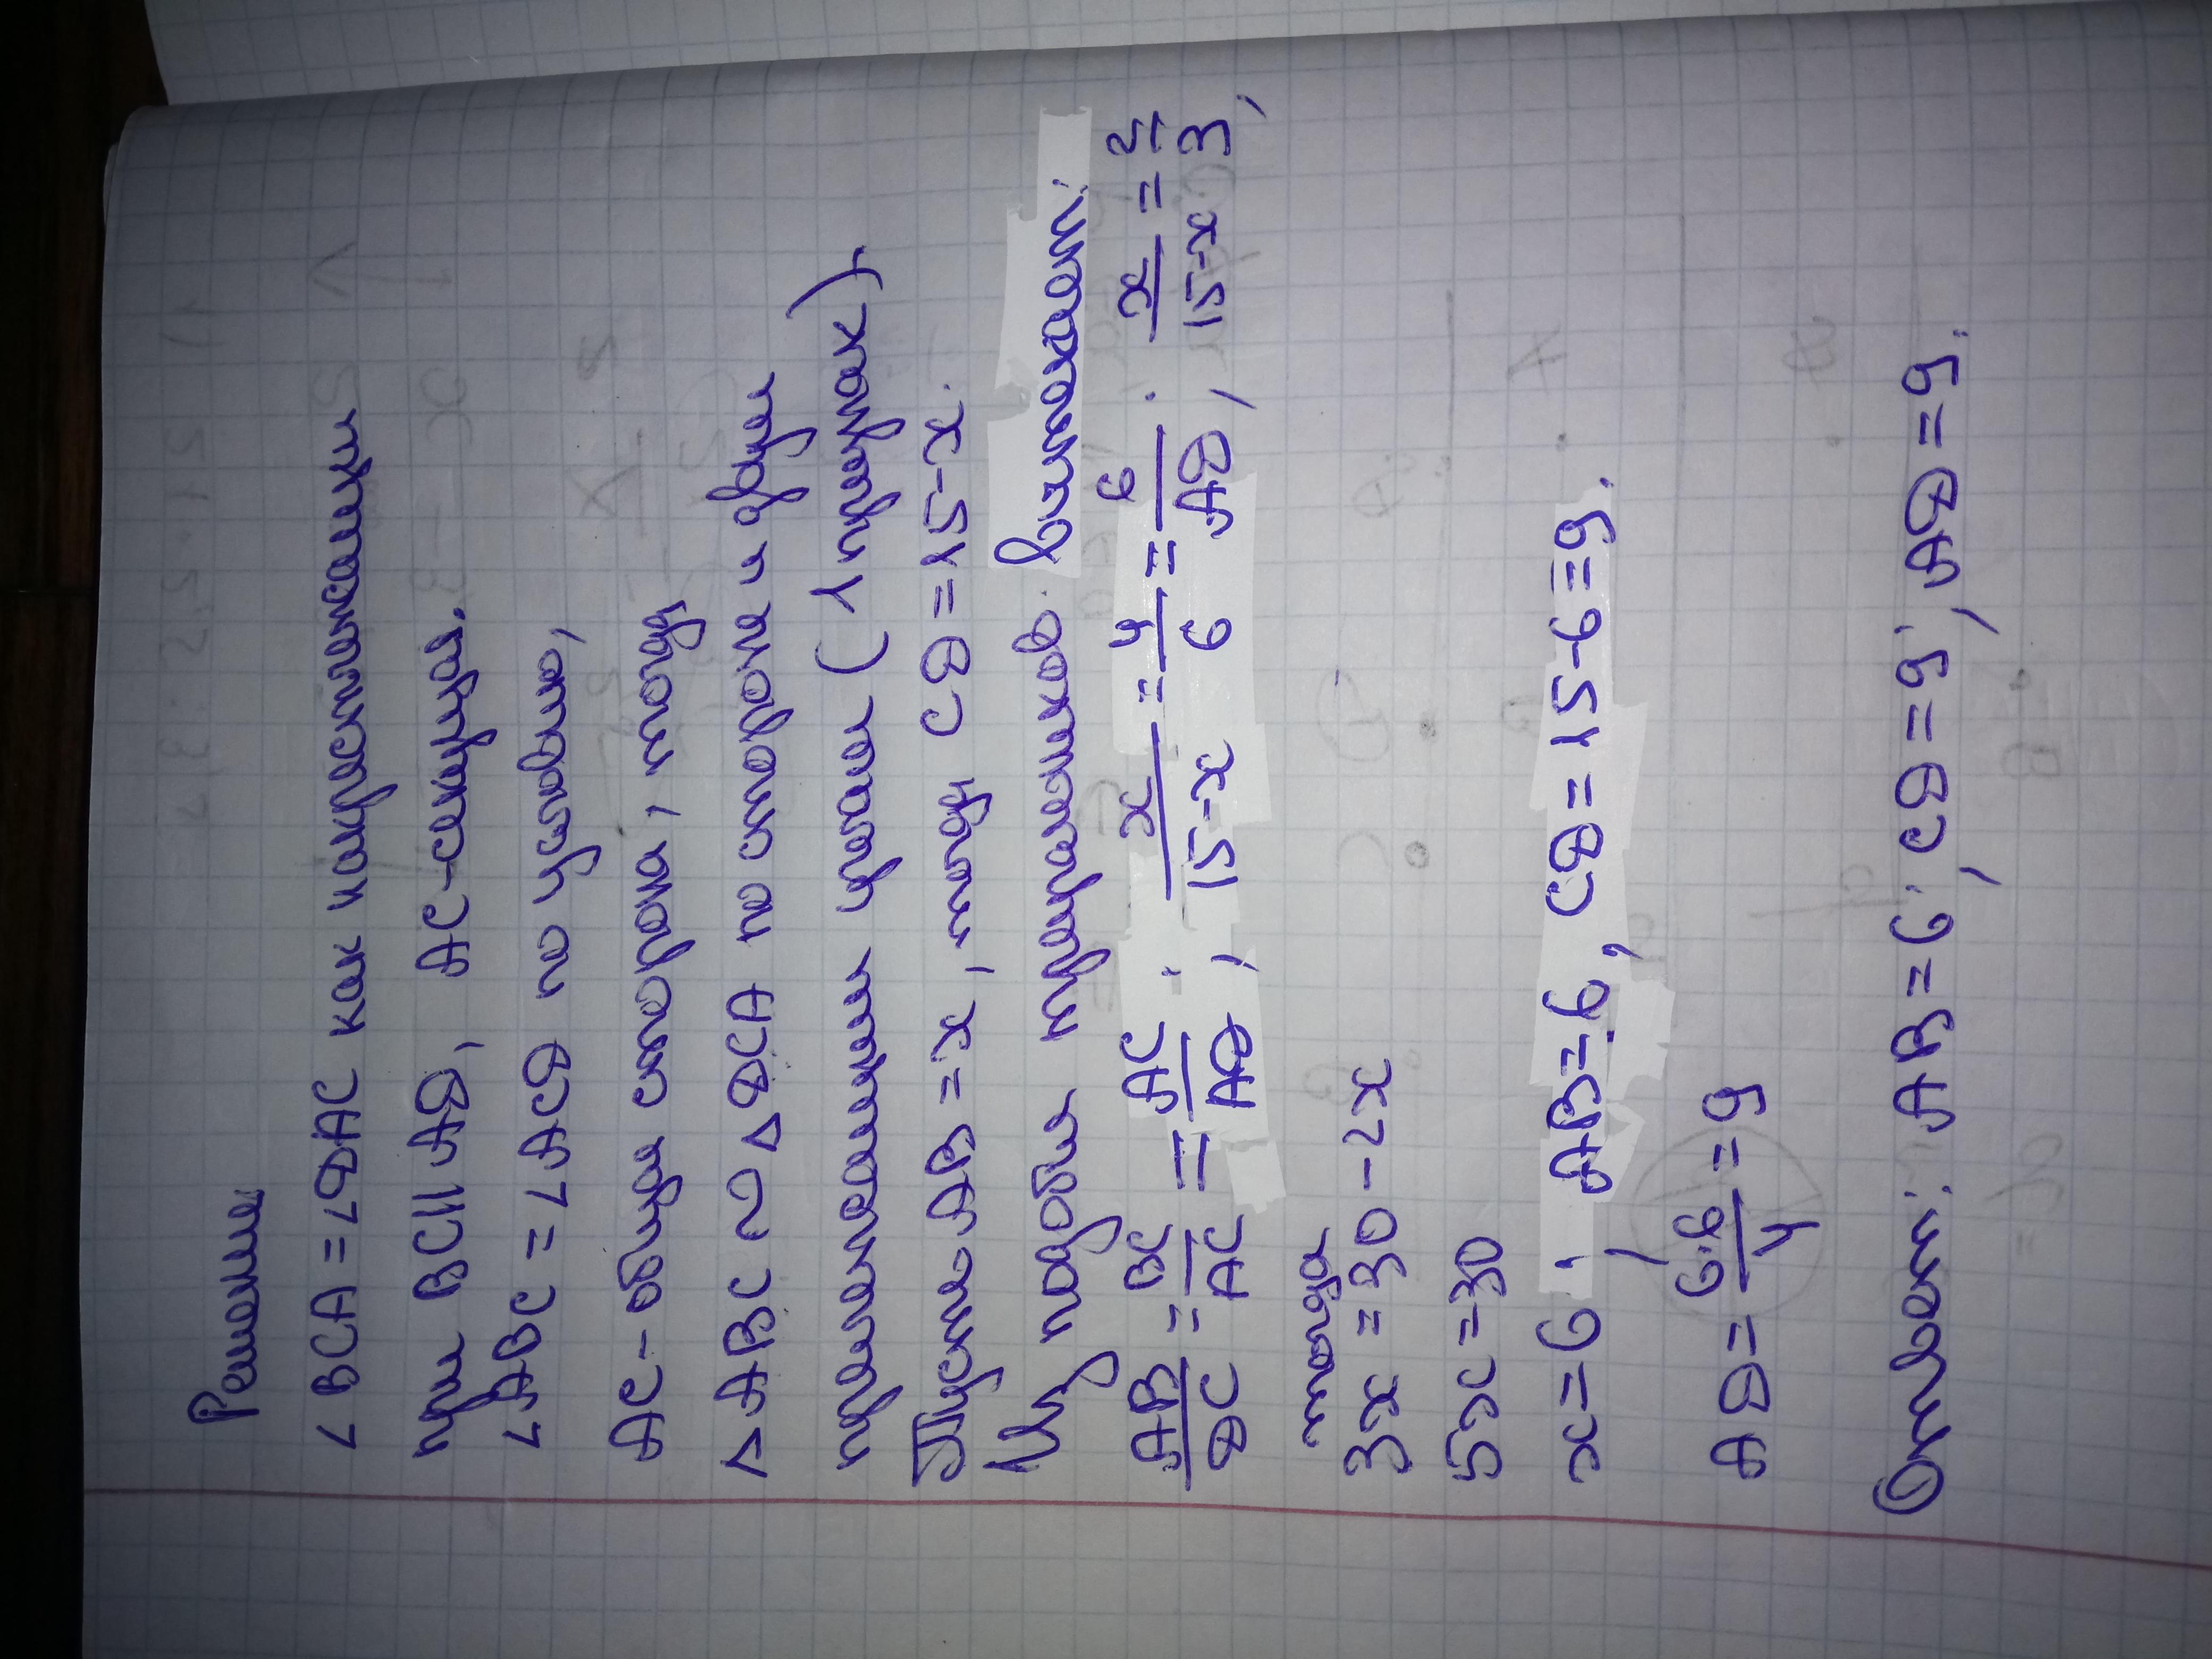 Решение
∠BCA = ∠DAC как накрест лежащие
при BC || AD, AC-секущая.
∠BAC = ∠ACD по условию,
AC - общая сторона, поэтому,
△ABC ~ △DCA по стороне и двум
прилежащим углам (1 признаку)
Пусть AB = x, тогда CD=15-x.
Из подобия треугольников следует:
AB/DC = BC/AC = AC/AD, x/15-x = 4/6 = 6/AD, x/15-x = 2/3,
тогда
3x = 30 - 2x
5x = 30
x = 6, AB=6, CD = 15-6=9.
AD = 6·6/4 = 9
Ответ: AB = 6, CD = 9, AD = 9.